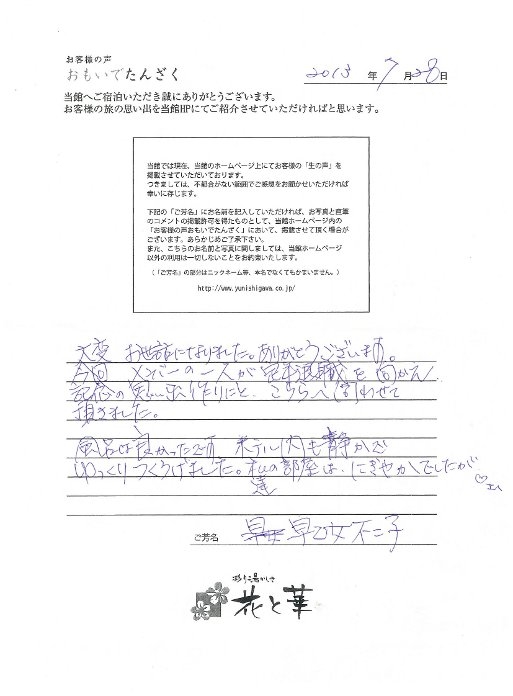 お客様の声
おもいでたんざく
2013 年 7 月 28 日
当館へご宿泊いただき誠にありがとうございます。
お客様の旅の思い出を当館HPにてご紹介させていただければと思います。
当館では現在、当館のホームページ上にてお客様の「生の声」を
掲載させていただいております。
つきましては、不都合がない範囲でご感想をお聞かせいただければ
幸いに存じます。
下記の「ご芳名」にお名前を記入していただければ、お写真と直筆
のコメントの掲載許可を得たものとして、当館ホームページ内の
「お客様の声おもいでたんざく」において、掲載させて頂く場合が
ございます。あらかじめご了承下さい。
また、こちらのお名前と写真に関しましては、当館ホームページ
以外の利用は一切しないことをお約束いたします。
(「ご芳名」の部分はニックネーム等、本名でなくてもかまいません。)
http://www.yunishigawa.co.jp/
大変 お世話になりました。ありがとうございます。
今回 メンバーの一人が定年退職を向かえ
記念の思い出作りにと、こちらへ伺わせて
頂きました。
風呂は良かったです。ホテル内も静かで
ゆっくりつくろげました。私達の部屋は、にぎやかでしたが
ご芳名 早乙女不二子
彩り湯かしき
花と華